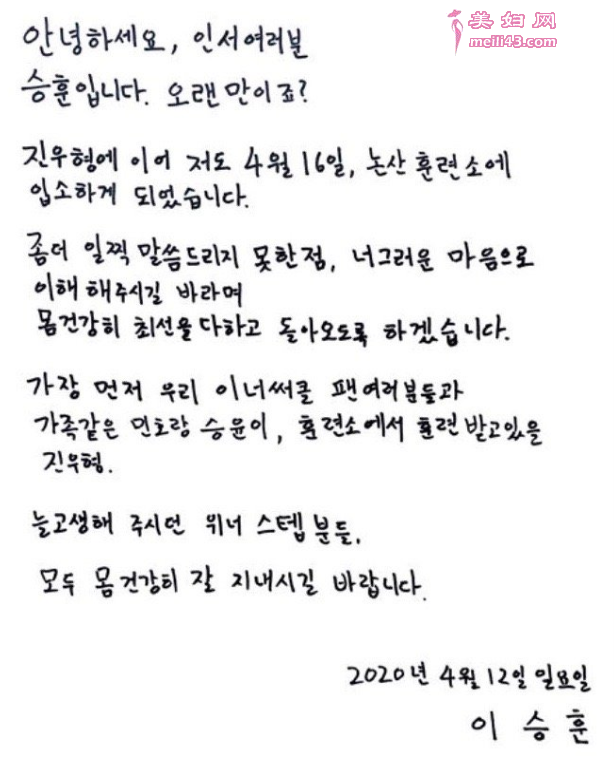 美妇网
meili43.com
안녕하세요, 인서여러분
승훈입니다. 오랜만이죠?
진우형에 이어 저도 4월 16일, 논산 훈련소에
입소하게 되었습니다.
좀더 일찍 말씀드리지 못한점, 너그러운 마음으로
이해 해주시길 바라며
몸건강히 최선을다하고 돌아오도록 하겠습니다.
가장 먼저 우리 이너써클 팬여러분들과
가족같은 민호랑 승윤이, 훈련소에서 훈련 받고있을
진우형.
늘고생해 주시던 위너 스텝분들,
모두 몸건강히 잘 지내시길 바랍니다.
2020년 4월 12일 일요일
이 승 훈